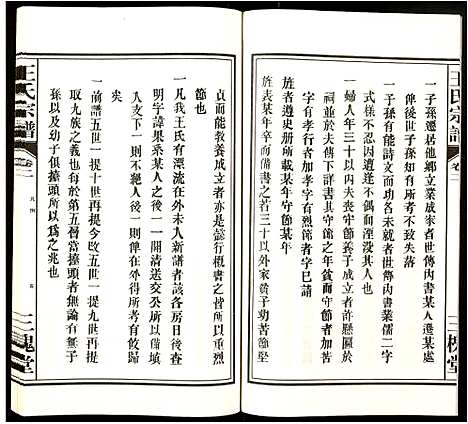 王氏宗譜
卷二
三槐堂
一子孫遷居他鄉立業成家者世傳內書某人遷某處
俾從後世子孫知有所考不致失落
一子孫有能詩文而功名未就者世傳內書業儒二字
式樣不忍因偶而湮沒其人也
一婦人年三十以內夫喪守節養子成立者許懸區於
祠並於夫傳下詳書其守節之年貧而守節者加
字有孝行者加孝字有烈節者字已請
旌者遵史册所載某年守節某年
旌表某年卒而備書之若三十以外家貧子幼苦節堅
貞而能教養成立者亦是懿行概書之皆所以重
節也
一凡我王氏有漂流在外未入新譜者該各房日後查
明字諱果系某人之後一一開清送交公所以備填
入支下則不絕人後一則俾在外得所考有攸歸
矣
一前譜五世一提十世再提今改五世一提九世再提
取九族之義也每於第五層當擡頭者無論有無子
孫以及幼子俱擡頭所以為之兆也
王氏宗譜
卷二
凡例
三槐堂